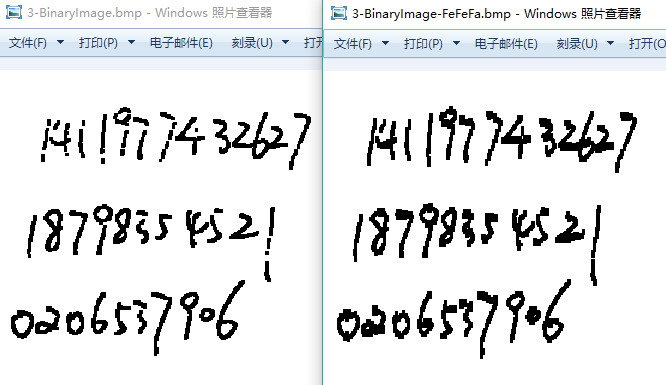 3-BinaryImage.bmp - Windows 照片查看器
文件(F) 打印(P) 电子邮件(E) 刻录(U) 打开
1411977432627
18798354521
0206537906
3-BinaryImage-FeFeFa.bmp - Windows 照片查看器
文件(F) 打印(P) 电子邮件(E) 刻录(U) 打开(O
1411977432627
18798354521
0206537906